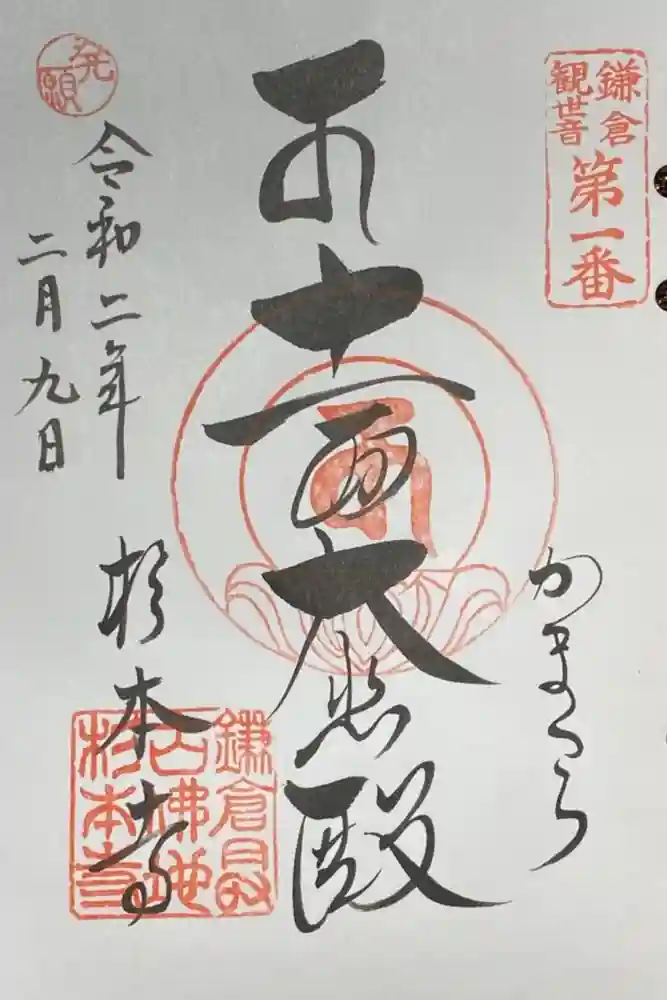 鎌倉
観世音
第一番
かまくら
十一面大悲殿
発願
令和二年
二月九日
杉本寺
鎌倉最
古佛地
杉本寺